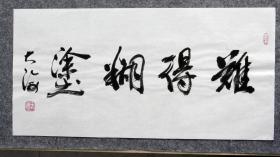 難得糊塗
大海